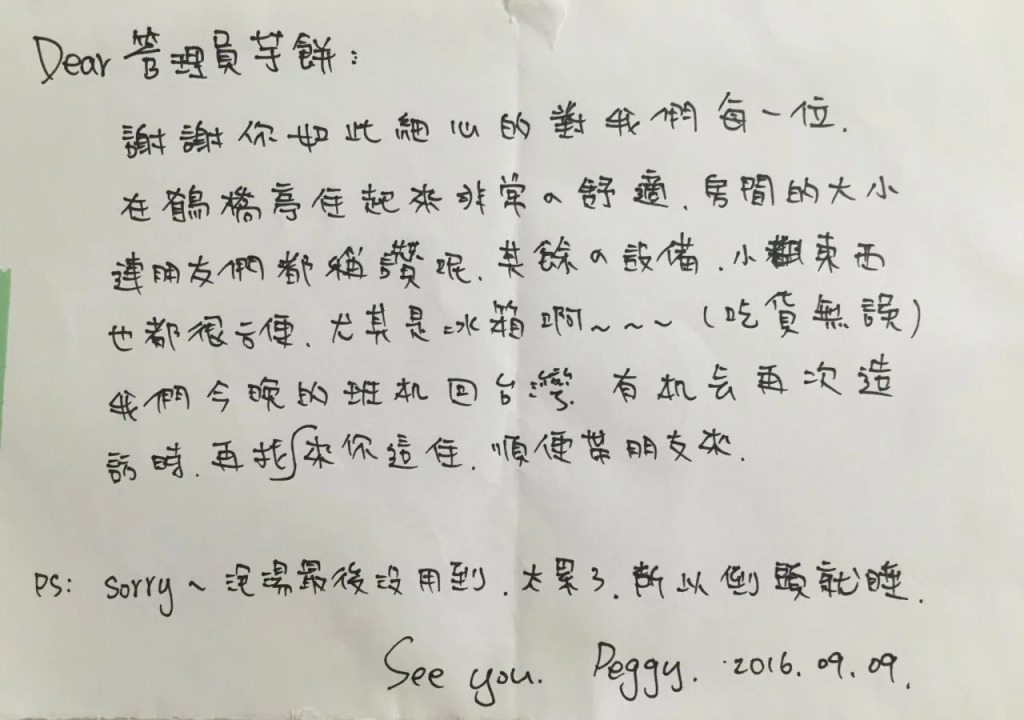 Dear 管理員芋餅：
謝謝你如此細心的對我們每一位.
在鶴橋亭住起來非常の舒適. 房間的大小
連朋友們都稱讚呢. 其餘の設備. 小東西
也都很方便. 尤其是冰箱啊~~~ (吃貨無誤)
我們今晚的班机回台灣. 有机会再次造
訪時. 再找來你這住. 順便幫朋友來.
PS: sorry~泡湯最後沒用到. 太累了. 所以倒頭就睡.
See you. Peggy. 2016.09.09.